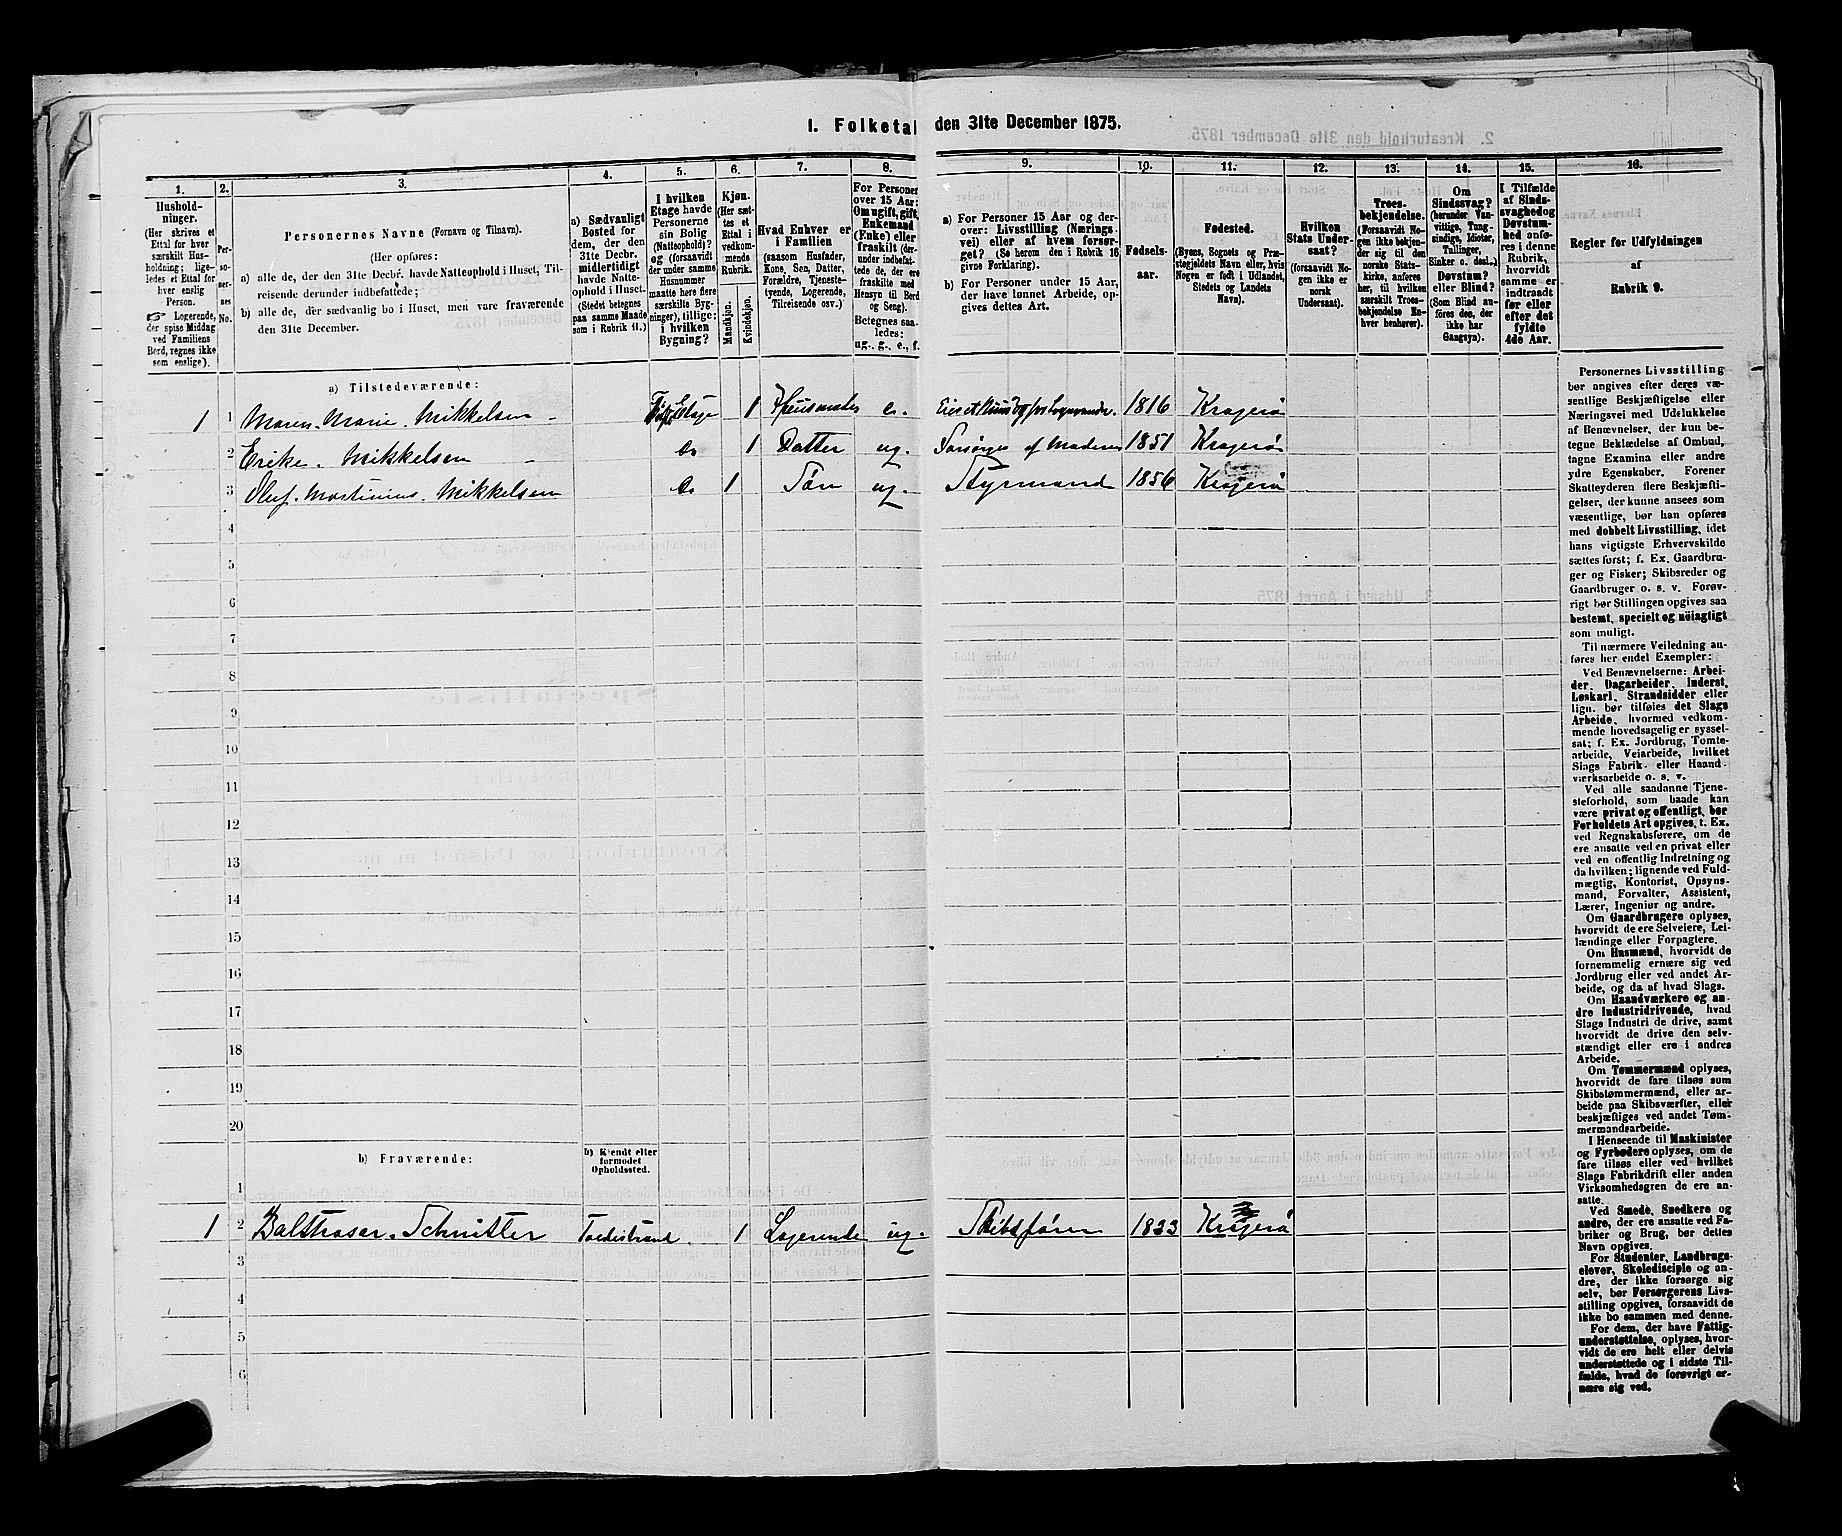 1. Folketal den 31te December 1875.
1.
Hushold-
ninger.
(Her skrives et
Ettal for hver
særskilt Hus-
holdning; lige-
ledes et Ettal for
hver enslig
Person.
☞ Logerende,
der spise Middag
ved Familiens
Bord, regnes ikke
som enslige).
2.
Per-
so-
ner-
nes
No.
3.
Personernes Navne (Fornavn og Tilnavn).
(Her opføres:
a) alle de, der den 31te Decbr. havde Natteophold i Huset, Til-
reisende derunder indbefattede;
b) alle de, der sædvanlig bo i Huset, men vare fraværende
den 31te December.
4.
a) Sædvanligt
Bosted for
dem, der den
31te Decbr.
midlertidigt
havde Natte-
ophold i Huset.
(Stedet betegnes
paa samme Maade
som i Rubrik 11.)
5.
I hvilken
Etage havde
Personerne
sin Bolig
(Natteophold)?
og (forsaavidt
der under samme
Husnummer
maatte høre flere
særskilte Byg-
ninger), tillige:
i hvilken
Bygning?
6.
Kjøn.
(Her sæt-
tes et
Ettal i
vedkom-
mende
Rubrik.
Mandkjøn.
Kvindekjøn.
7.
Hvad Enhver er
i Familien
(saasom Husfader,
Kone, Søn, Datter,
Forældre, Tjeneste-
tyende, Logerende,
Tilreisende osv.)
8.
For Personer
over 15 Aar:
Om ugift, gift,
Enkemand
(Enke) eller
fraskilt (der-
under indbefat-
tede de, der ere
fraskilte med
Hensyn til Bord
og Seng).
Betegnes saa-
ledes:
ug., g., e., f.
9.
a) For Personer 15 Aar og der-
over: Livsstilling (Nærings-
vei) eller af hvem forsør-
get? (Se herom den i Rubrik 16
givne Forklaring).
b) For Personer under 15 Aar,
der have lønnet Arbeide, op-
gives dettes Art.
10.
Fødsels-
aar.
11.
Fødested.
(Byens, Sognets og Præ-
stegjeldets Navn eller, hvis
Nogen er født i Udlandet,
Stedets og Landets
Navn).
12.
Hvilken
Stats Under-
saat?
(forsaavidt No-
gen ikke er
norsk
Undersaat).
13.
Troes-
bekjendelse.
(Forsaavidt No-
gen ikke bekjen-
der sig til den
norske Stats-
kirke, anføres
her, til hvilken
særskilt Troes-
bekjendelse En-
hver henhører).
14.
Om
Sindssvag?
(herunder Van-
vittige, Tung-
sindige, Idioter,
Tullinger,
Sinker o. desl.,)
Døvstum?
eller Blind?
(Som Blind an-
føres den, der
ikke har
Gangsyn).
15.
I Tilfælde
af Sinds-
svaghed og
Døvstum-
hed anfø-
res i denne
Rubrik,
hvorvidt
samme er
indtraadt
før eller
efter det
fyldte
4de Aar.
16.
Regler for Udfyldningen
af
Rubrik 9.
a) Tilstedeværende:
1 1 Maren Marie Mikkelsen - Etage 1 Husmoder e. 1816 Kragerø
2 Erike Mikkelsen - do 1 Datter ug. Forsørges af Moderen 1851 Kragerø
3 Oluf Martinius Mikkelsen do 1 Søn ug. Styrmand 1856 Kragerø
4
5
6
7
8
9
10
11
12
13
14
15
16
17
18
19
20
b) Fraværende:
b) Kjendt eller
formodet
Opholdssted.
1
1 2 Balthasar Schnitler Tvedestrand. 1 Logerende ug. Skibsfører 1833 Kragerø
3
4
5
6
Personernes Livsstilling
bør angives efter deres væ-
sentlige Beskjæftigelse eller
Næringsvei med Udelukkelse
af Benævnelser, der kun be-
tegne Beklædelse af Ombud,
tagne Examina eller andre
ydre Egenskaber. Forener
Skatteyderen flere Beskjæfti-
gelser, der kunne ansees som
væsentlige, bør han opføres
med dobbelt Livsstilling, idet
hans vigtigste Erhvervskilde
sættes først; f. Ex. Gaardbru-
ger og Fisker; Skibsreder og
Gaardbruger o. s. v. Forøv-
rigt bør Stillingen opgives saa
bestemt, specielt og nøiagtigt
som muligt.
Til nærmere Veiledning an-
føres her endel Exempler:
Ved Benævnelserne: Arbei-
der, Dagarbeider, Inderst,
Løskarl, Strandsidder eller
lign. bør tilføies det Slags
Arbeide, hvormed vedkom-
mende hovedsagelig er syssel-
sat; f. Ex. Jordbrug, Tomte-
arbeide, Veiarbeide, hvilket
Slags Fabrik- eller Haand-
værksarbeide o. s. v.
Ved alle saadanne Tjene-
steforhold, som baade kan
være privat og offentligt, bør
Forholdets Art opgives, t. Ex.
ved Regnskabsførere, om de
ere ansatte ved en privat eller
ved en offentlig Indretning og
da hvilken; lignende ved Fuld-
mægtig, Kontorist, Opsyns-
mand, Forvalter, Assistent,
Lærer, Ingeniør og andre.
Om Gaardbrugere oplyses,
hvorvidt de ere Selveiere, Lei-
lændinge eller Forpagtere.
Om Husmænd, hvorvidt de
fornemmelig ernære sig ved
Jordbrug eller ved andet Ar-
beide, og da af hvad Slags.
Om Haandværkere og an-
dre Industridrivende, hvad
Slags Industri de drive, samt
hvorvidt de drive den selv-
stændigt eller ere i andres
Arbeide.
Om Tømmermænd oplyses,
hvorvidt de fare tilsøs som
Skibstømmermænd, eller ar-
beide paa Skibsværfter, eller
beskjæftiges ved andet Tøm-
mermandsarbeide.
I Henseende til Maskinister
og Fyrbødere oplyses, om de
fare tilsøs eller ved hvilket
Slags Fabrikdrift eller anden
Virksomhedsgren de ere an-
satte.
Ved Smede, Snedkere og
andre, der ere ansatte ved Fa-
briker og Brug, bør dettes
Navn opgives.
For Studenter, Landbrugs-
elever, Skoledisciple og an-
dre, der ikke forsørge sig
selv, bør Forsørgerens Livs-
stilling opgives, forsaavidt de
ikke bo sammen med denne.
For dem, der have Fattig-
understøttelse, oplyses, hvor-
vidt de ere helt eller delvis
understøttede og i sidste Til-
fælde, hvad de forøvrigt er-
nære sig ved.